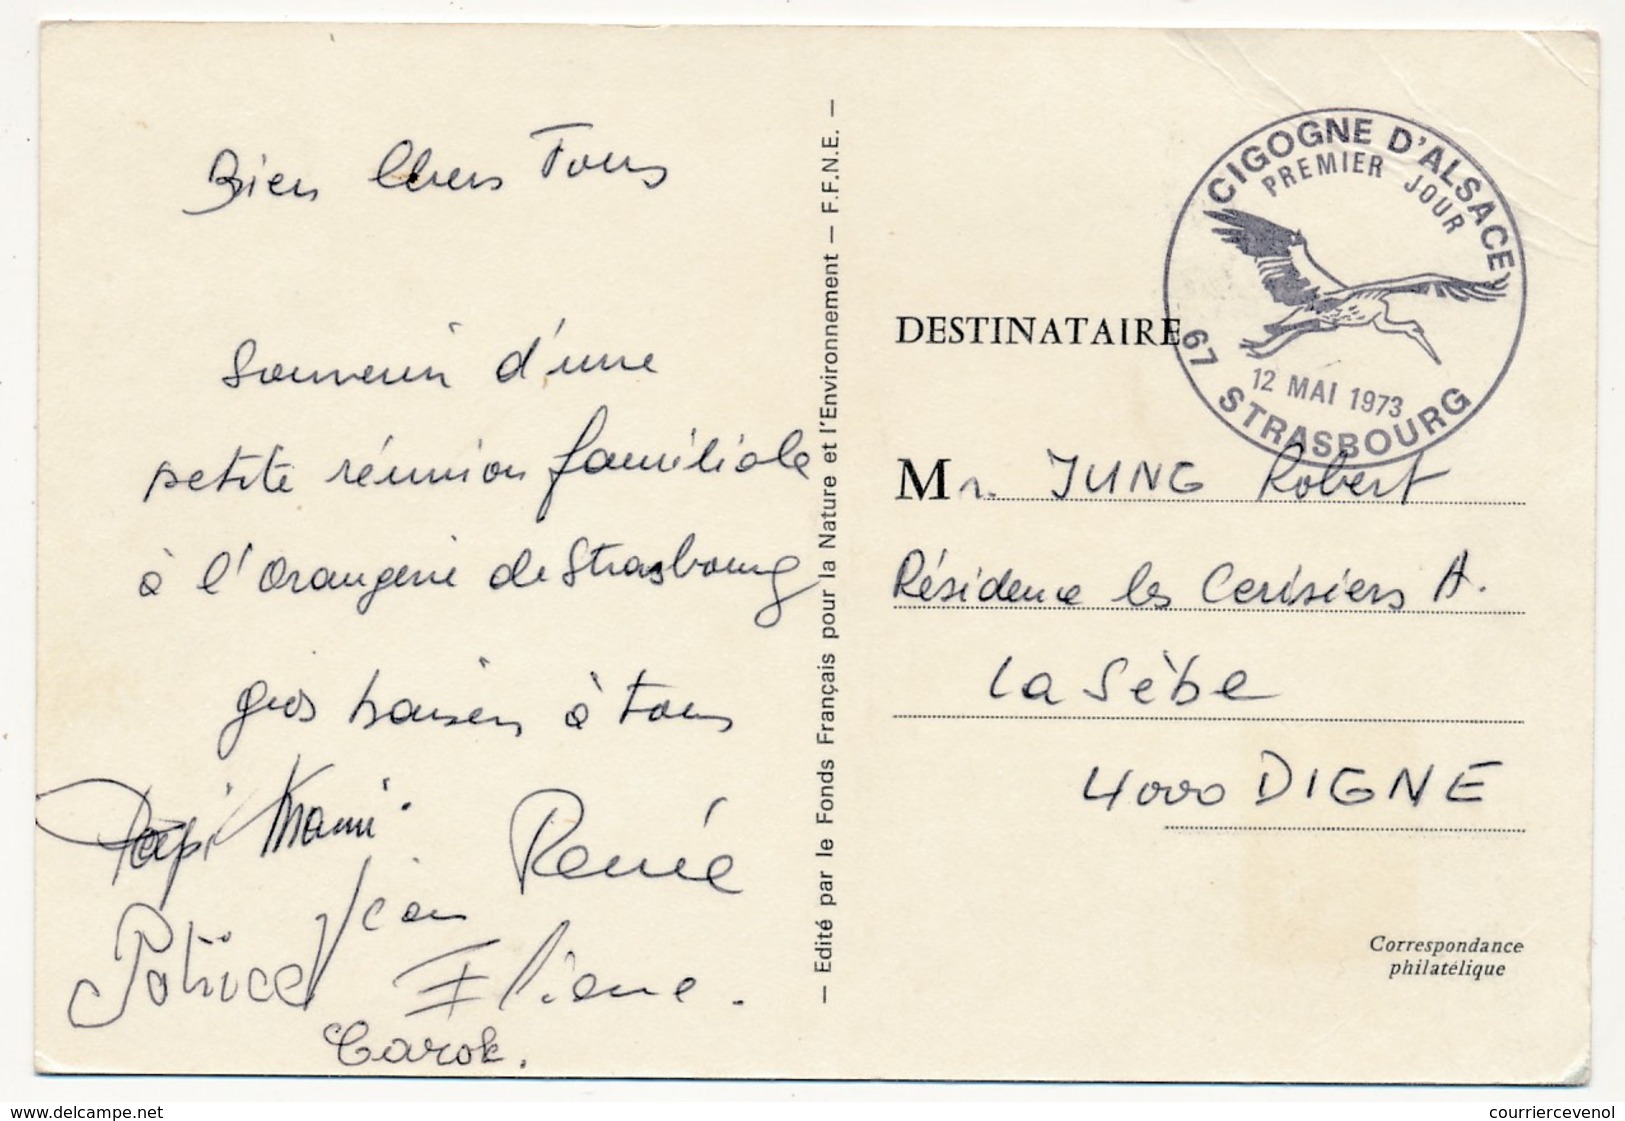 Bien Chers Tous
Souvenir d'une
petite réunion familiale
à l'Orangerie de Strasbourg
gros baisers à tous
Papi Mami.
Renée
Jean
Patrice
Eliane.
Carole.
— Edité par le Fonds Français pour la Nature et l'Environnement — F.F.N.E. —
CIGOGNE D'ALSACE
PREMIER JOUR
12 MAI 1973
67 STRASBOURG
DESTINATAIRE
Mr. JUNG Robert
Résidence les Cerisiers A.
La Sèbe
4000 DIGNE
Correspondance
philatélique
www.delcampe.net
courriercevenol